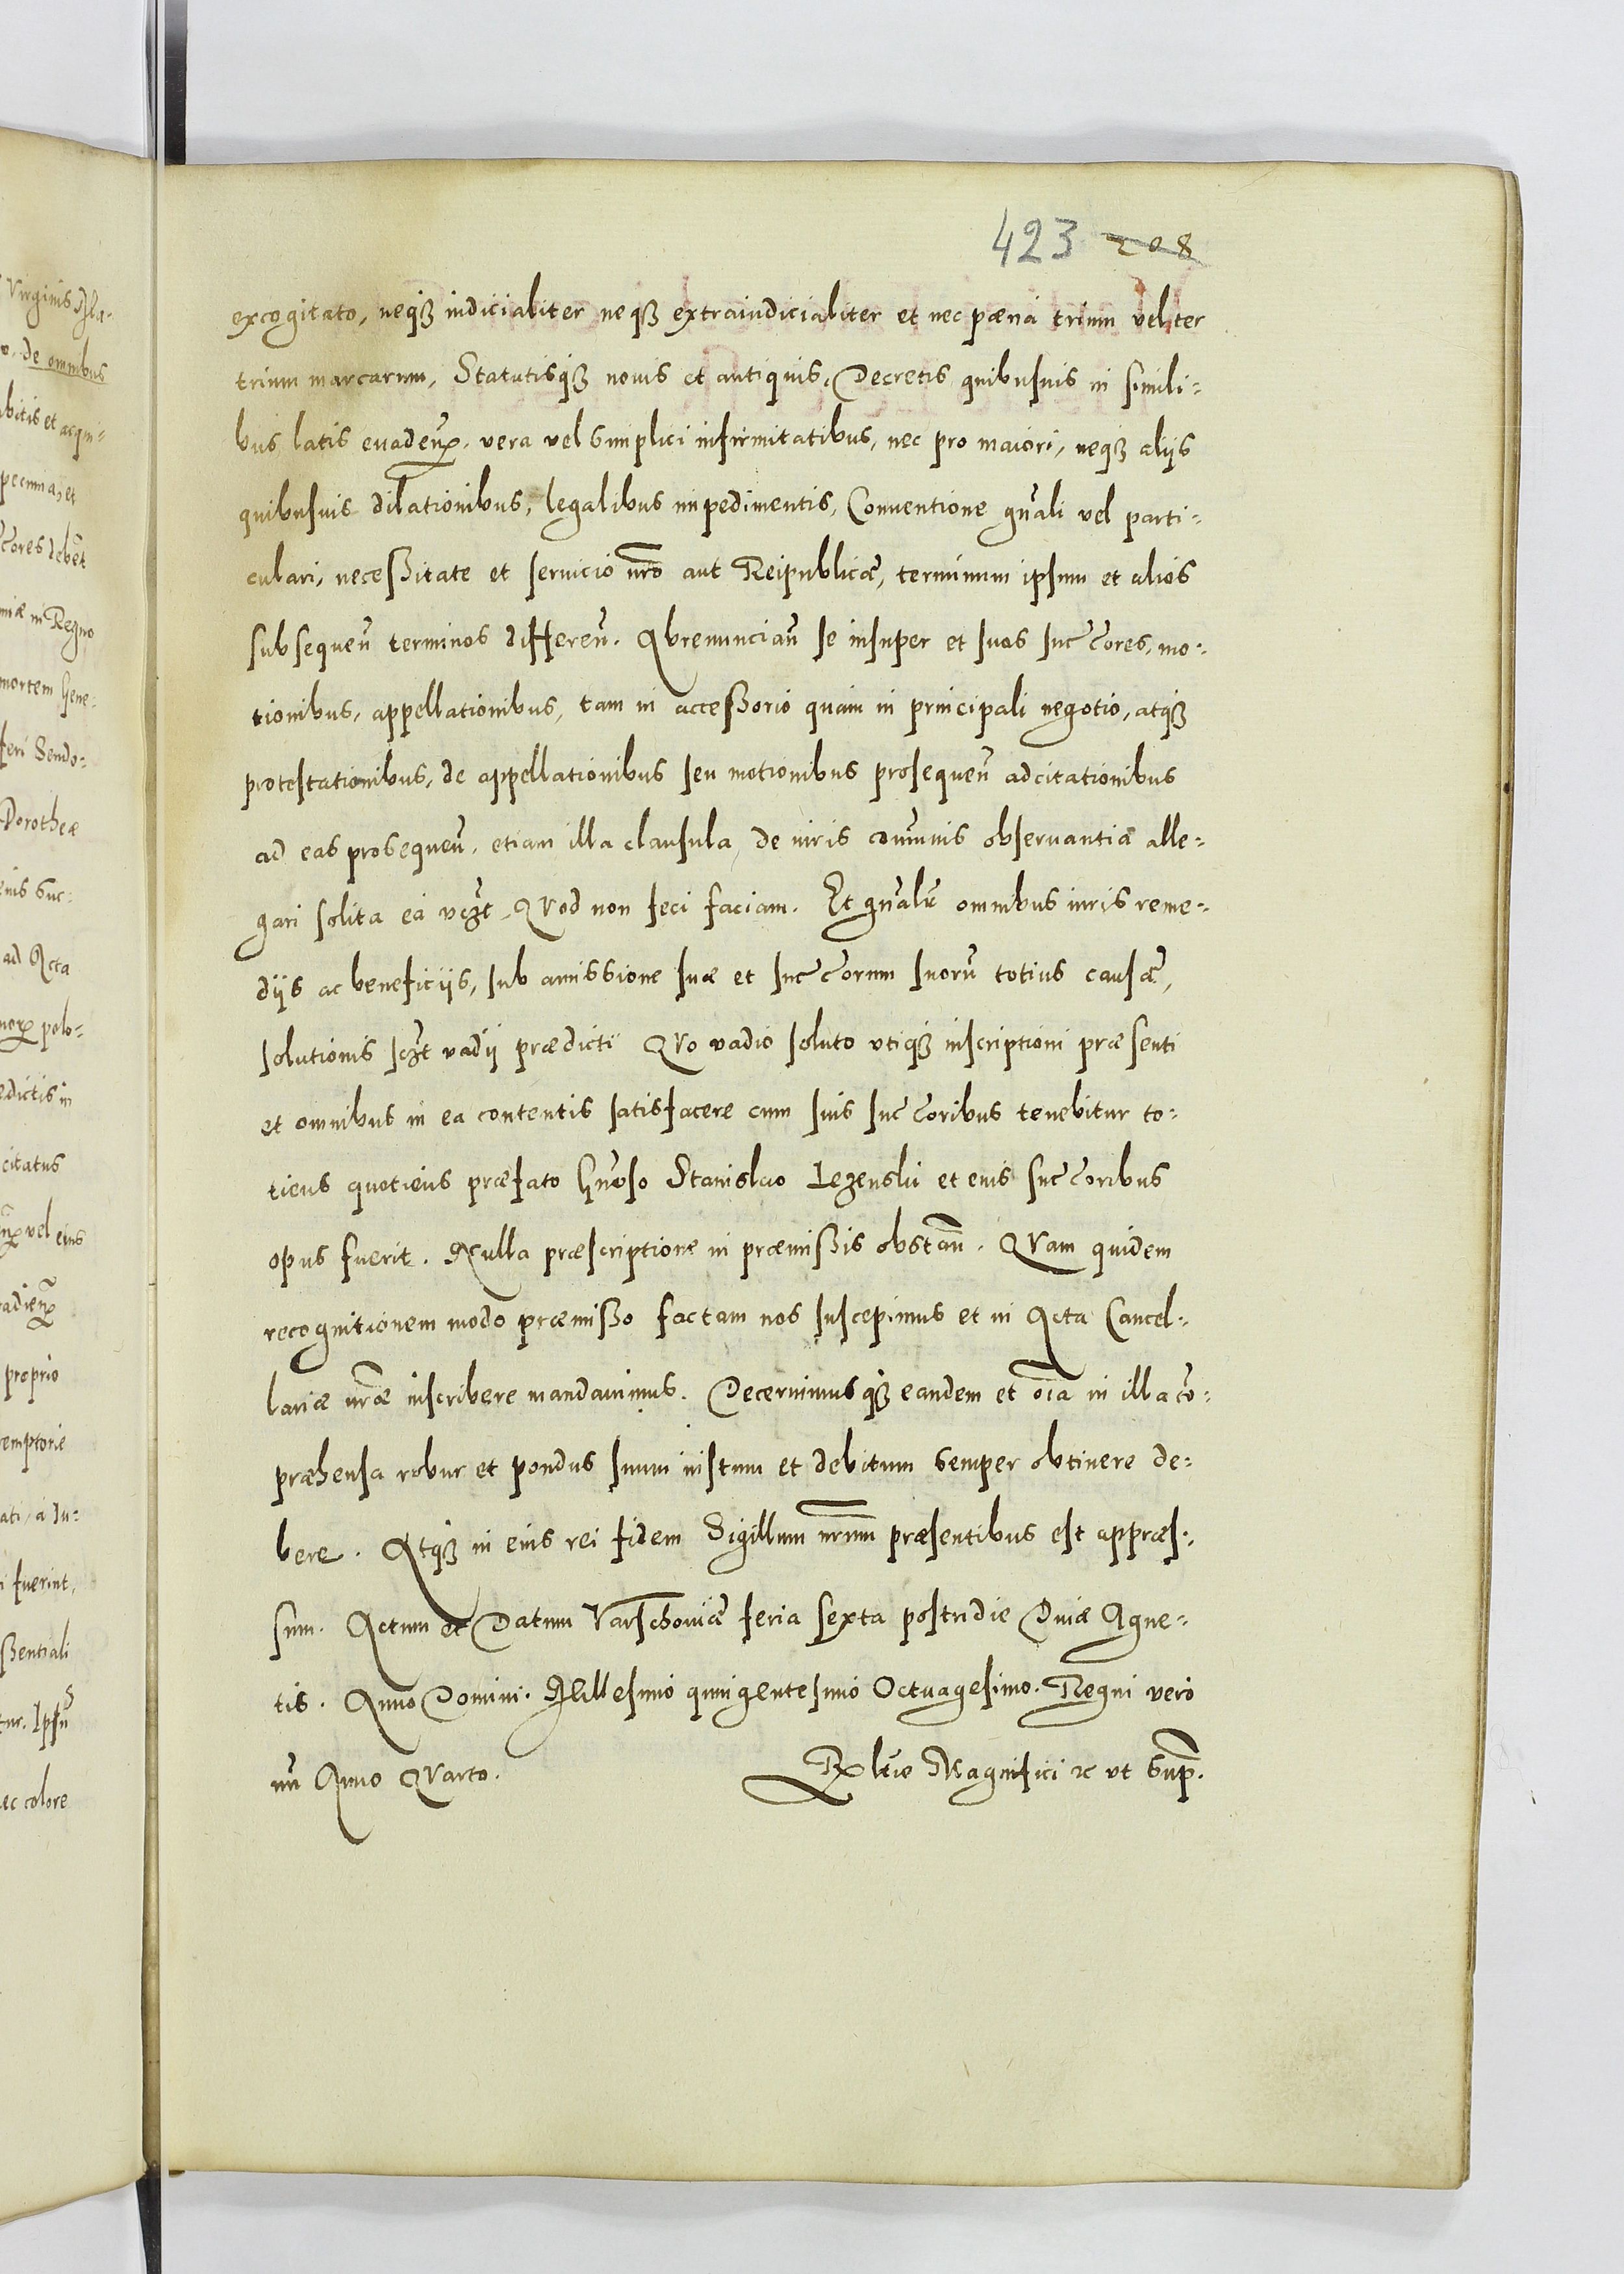 423 208
excogitato, neqꝫ iudicialiter neqꝫ extraiudicialiter et nec pæna trium vel ter
trium marcarum, Statutisqꝫ nouis et antiquis, Decretis quibusuis in simili-
bus latis euadeñ. vera vel simplici infirmitatibus, nec pro maiori, neqꝫ alijs
quibusuis dilationibus, legalibus impedimentis, Conuentione gñali vel parti-
culari, necessitate et seruicio nr̃o aut Reipublicæ, terminum ipsum et alios
subsequeñ terminos differeñ. Abrenunciañ se insuper et suos succ̃ores, mo-
tionibus, appellationibus, tam in accessorio quam in principali negotio, atqꝫ
protestationibus, de appellationibus seu motionibus prosequeñ adcitationibus
ad eas prosequeñ. etiam illa clausula, de iuris com̃unis obseruantia alle-
gari solita ea vcꝫt, Quod non feci faciam. Et gñalr̃ omnibus iuris reme-
dijs ac beneficijs, sub amissione suæ et succ̃orum suorũ totius causæ,
solutionis scꝫt vadij prædicti Quo vadio soluto vtiqꝫ inscriptioni præsenti
et omnibus in ea contentis satisfacere cum suis succ̃oribus tenebitur to-
tiens quotiens præfato Gñoso Stanislao Lezenski et eius succ̃oribus
opus fuerit. Nulla præscriptione in præmissis obstañ. Quam quidem
recognitionem modo præmisso factam nos suscepimus et in Acta Cancel-
lariæ nr̃æ inscribere mandauimus. Decernimusqꝫ eandem et oĩa in illa cõ-
præhensa robur et pondus suum iustum et debitum semper obtinere de-
bere. Atqꝫ in eius rei fidem Sigillum nr̃um præsentibus est appræs-
sum. Actum et Datum Varschouiæ feria sexta postridie Diuæ Agne-
tis. Anno Domini. Millesimo quingentesimo Octuagesimo. Regni vero
nr̃i Anno Quarto.
Rl̃tio Magnifici ꝛc vt sup̃.